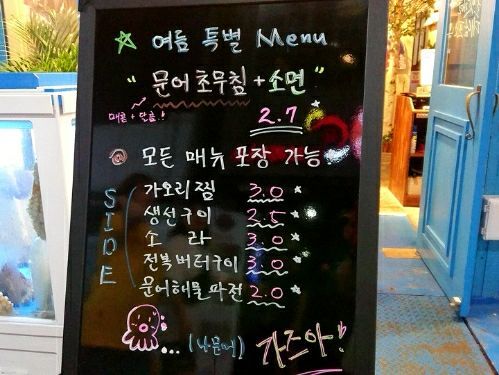 ☆ 여름 특별 Menu
" 문어초무침 + 소면 "
매콤 + 달콤!!
2.7
@ 모든 메뉴 포장 가능
SIDE
가오리찜 3.0
생선구이 2.5
소라 3.0
전복버터구이 3.0
문어해물파전 2.0
... (나문어) 가즈아!